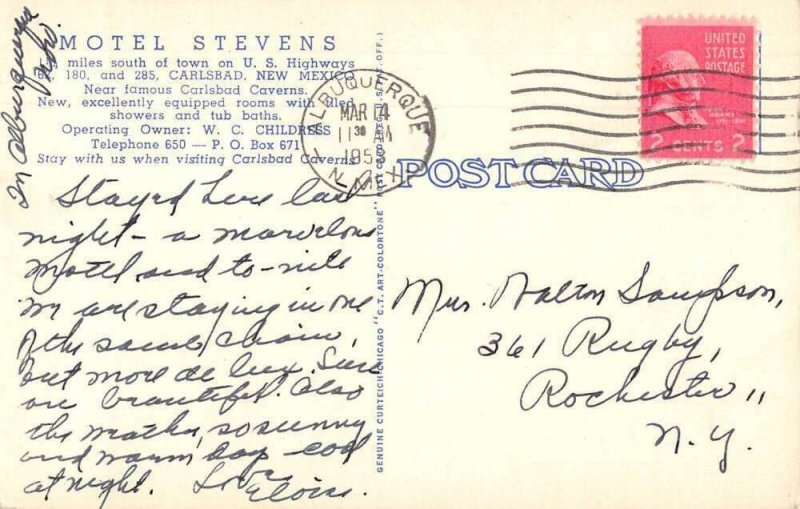 MOTEL STEVENS
miles south of town on U. S. Highways
62, 180, and 285, CARLSBAD, NEW MEXICO
Near famous Carlsbad Caverns.
New, excellently equipped rooms with tiled
showers and tub baths.
Operating Owner: W. C. CHILDRESS
Telephone 650 — P. O. Box 671
Stay with us when visiting Carlsbad Caverns
In Alburquerque
Stayed here last
night - a marvelous
motel and to-nite
we are staying in one
of the same chain,
but more de luxe.
are beautiful. Also
the weather, so sunny
and warm day - cool
at night. Love
Eloise.
GENUINE CURTEICH-CHICAGO "C. T. ART-COLORTONE" POST CARD (REG. U.S. PAT. OFF.)
ALBUQUERQUE
MAR 14
11 30 AM
195
N. MEX.
POST CARD
UNITED
STATES
POSTAGE
JOHN
ADAMS
2 CENTS 2
Mrs. Walton Sampson,
361 Rugby,
Rochester,,
N.Y.